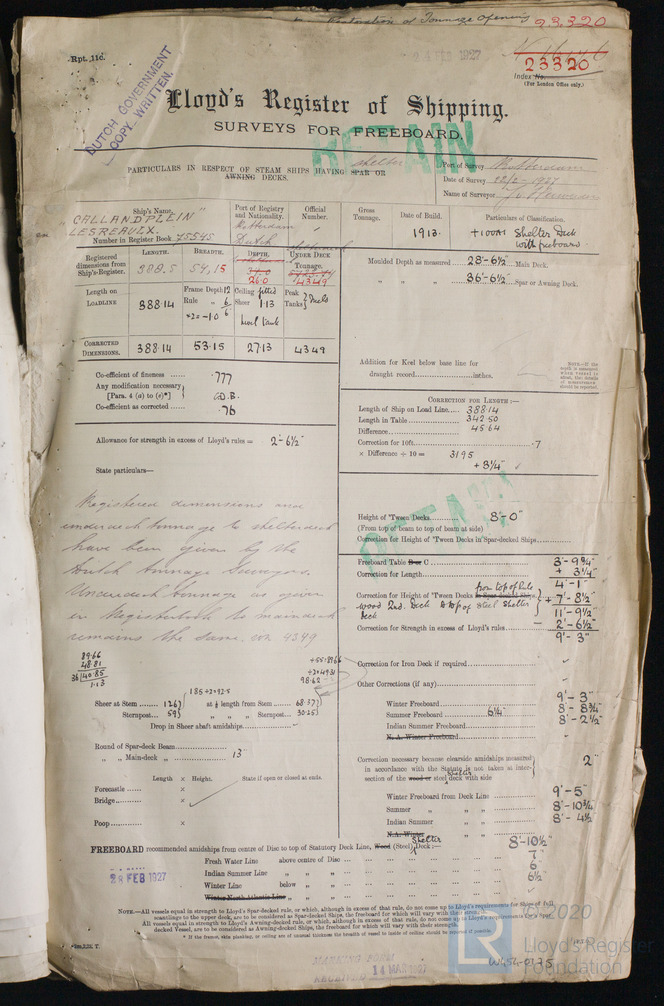 Declaration of Tonnage Opening 23,320
Rpt. 11c.
24 FEB 1927
23320
Index No.
(For London Office only.)
DUTCH GOVERNMENT
COPY WRITTEN.
Lloyd's Register of Shipping.
SURVEYS FOR FREEBOARD.
RETAIN
PARTICULARS IN RESPECT OF STEAM SHIPS HAVING shelter SPAR OR
AWNING DECKS.
Port of Survey Rotterdam
Date of Survey 22/2-1927
Name of Surveyor
Ship's Name.
CALLANDPLEIN"
LESREAULX.
Number in Register Book 75545
Port of Registry
and Nationality.
Rotterdam
Dutch
Official
Number.
Gross
Tonnage.
Date of Build.
1913
Particulars of Classification.
+100A1 Shelter Deck
with freeboard
Registered
dimensions from
Ship's-Register.
LENGTH.
388.5
BREADTH.
54,15
DEPTH.
26.0
UNDER DECK
Tonnage.
4349
Length on
LOADLINE
388.14
Frame Depth 12
Rule " 6
Ceiling fitted
Sheer 1.13
Peak
Tanks
CORRECTED
DIMENSIONS.
388.14
53.15
27.13
4349
Moulded Depth as measured 28'-6½" Main Deck.
" " " 36'-6½" Spar or Awning Deck.
Co-efficient of fineness .777
Any modification necessary
[Para. 4 (a) to (e)*] C.D.B.
Co-efficient as corrected .76
Addition for Keel below base line for
draught record inches.
CORRECTION FOR LENGTH:—
Length of Ship on Load Line 388.14
Length in Table 342.50
Difference 45.64
Correction for 10ft. .7
× Difference ÷ 10 = 3195
+ 3¼"
Allowance for strength in excess of Lloyd's rules = 2'-6½"
State particulars—
Registered dimensions and
underdeck tonnage to shelterdeck
have been given by the
Dutch Tonnage Surveyors.
Underdeck tonnage as given
in Registerbook to maindeck
remains the same. viz 4349
RETAIN
Height of 'Tween Decks 8'-0"
(From top of beam to top of beam at side)
Correction for Height of 'Tween Decks in Spar-decked Ships
Freeboard Table C 3'-9¾"
Correction for Length + 3¼"
4'-1"
Correction for Height of 'Tween Decks from top of
wood 2nd. Deck to top of Steel Shelter
Deck + 7'-8½"
11'-9½"
Correction for Strength in excess of Lloyd's rules – 2'-6½"
9'-3"
Correction for Iron Deck if required
Other Corrections (if any)
89.66
48.81
36)40.85
1.13
98.62
Sheer at Stem 126 at ⅛ length from Stem 68.37
Sternpost 59 " " " Sternpost 30.25
Drop in Sheer abaft amidships
Winter Freeboard 9'-3"
Summer Freeboard 6¼" 8'-8¾"
Indian Summer Freeboard 8'-2½"
N. A. Winter Freeboard
Round of Spar-deck Beam
" " Main-deck " 13"
Correction necessary because clearside amidships measured
in accordance with the Statute is not taken at inter-
section of the wood or steel Shelter deck with side 2"
Length × Height. State if open or closed at ends.
Forecastle ×
Bridge ×
Poop ×
Winter Freeboard from Deck Line 9'-5"
Summer " " 8'-10¾"
Indian Summer " " 8'-4½"
N.A. Winter " "
FREEBOARD recommended amidships from centre of Disc to top of Statutory Deck Line, Wood (Steel) Shelter Deck:— 8'-10½"
Fresh Water Line above centre of Disc 7"
Indian Summer Line " " " 6"
Winter Line below " " 6½"
Winter North Atlantic Line " " "
28 FEB 1927
NOTE.—All vessels equal in strength to Lloyd's Spar-decked rule, or which, although in excess of that rule, do not come up to Lloyd's requirements for ships of full
scantlings to the upper deck, are to be considered as Spar-decked Ships, the freeboard for which will vary with their strength.
All vessels equal in strength to Lloyd's Awning-decked rule, or which, although in excess of that rule, do not come up to Lloyd's requirements for Spar-
decked Vessel, are to be considered as Awning-decked Ships, the freeboard for which will vary with their strength.
14 MAR 1927
© 2020
LR
Lloyd's Register
Foundation
W454-0175